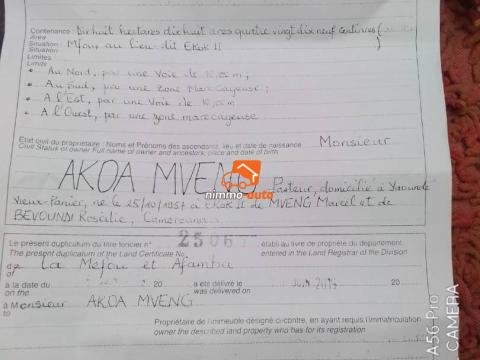 Contenance Dix huit hectares dix huit ares quatre vingt dix neuf centiares
Area
Situation Mfou au lieu dit EKoK II
Situation
Limites
Limits
• Au Nord, par une Voie de
• Au Sud, par une zone Marecageuse;
• A l'Est, par une Voie de
• A l'Ouest, par une zone marecageuse
Etat civil du propriétaire : Noms et Prénoms des ascendants, lieu et date de naissance Monsieur
Civil Status of owner Full name of owner and ancestors, place and date of birth
AKOA MVENG, Pasteur, domicilié à Yaoundé
nimmo-auto
Vieux-Panier, né le 25/10/1957 à EKoK II de MVENG Marcel et de
BEVOUNDI Rosalie, Camerounais
Le présent duplicatum du titre foncier n° 2506 établi au livre de propriété du département
The present duplicatum of the Land Certificate No entered in the Land Registrar of the Division
de La Mefou et Afamba
à la date du 20 a été délivré le 20
on the was delivered on
à Monsieur AKOA MVENG
to
Propriétaire de l'immeuble désigné ci-contre, en ayant requis l'immatriculation
owner the described land property who has for its registration
A56-Pro
CAMERA